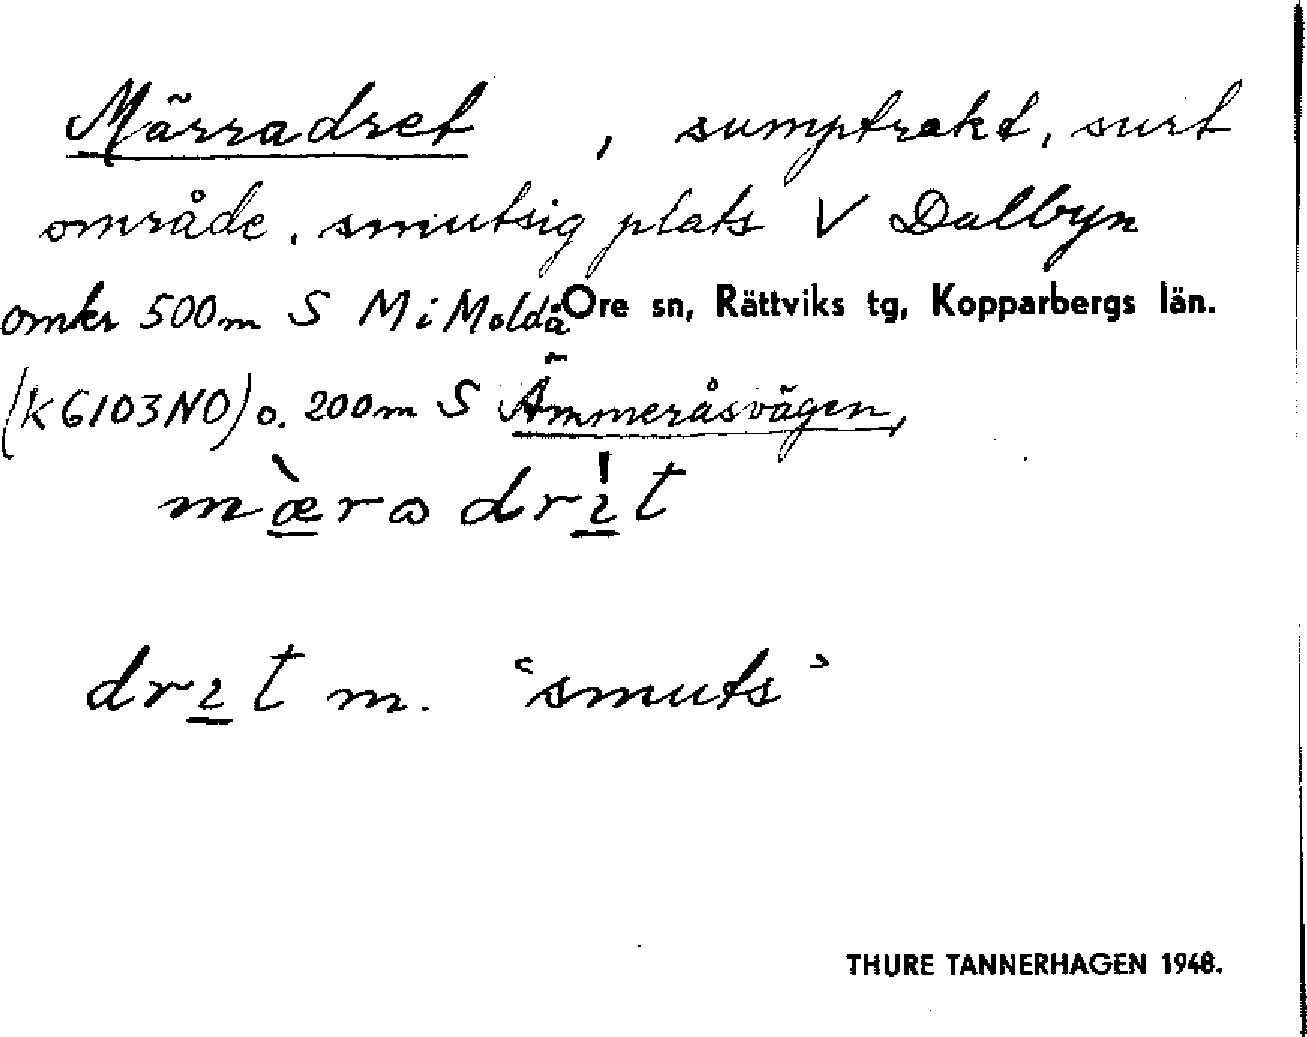 Märradret , sumptrakt, surt
område, smutsig plats V Dalbyn
omkr 500m S M i Moldå Ore sn, Rättviks tg, Kopparbergs län.
(K6103NO) o. 200m S Ämmeråsvägen,
mæ̀rɷ drı̍t
drıt m. 'smuts'
THURE TANNERHAGEN 1948.